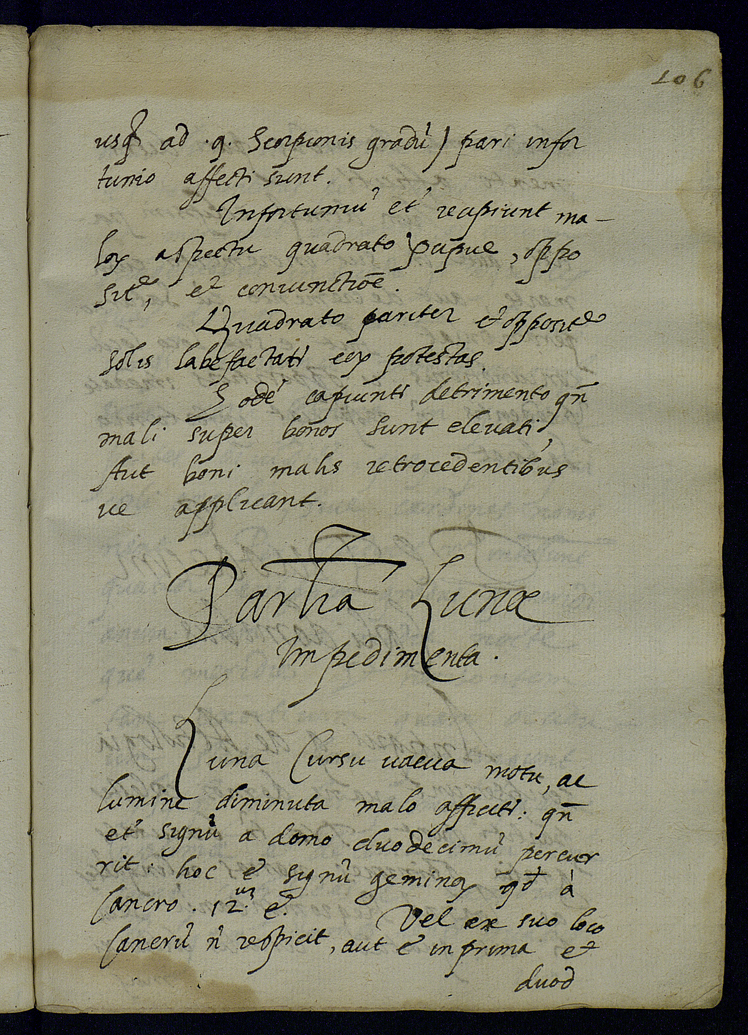 106
usq₃ ad .9. Scorpionis gradũ) pari infor
tunio affecti sunt.
Infortuniũ et recipiunt ma-
loꝝ aspectu quadrato, oppo
sit, et coniunctiõe.
Quadrato pariter et opposit
solis labefactati eoꝝ potestas.
Eodẽ capiunt detrimento qñ
mali super bonos sunt elevati,
Aut boni malis retrocedentibus
ve applicant.
Partĩa Lunæ
Impedimenta.
Luna Cursu vacua motu, ac
lumine diminuta malo afficit: qñ
et signũ a domo duodecimũ percur
rit. hoc ẽ signũ geminoꝝ qđ à
Cancro .12.um ẽ. Vel ex suo loco
Cancrũ ñ respicit, aut ẽ in prima et
duod